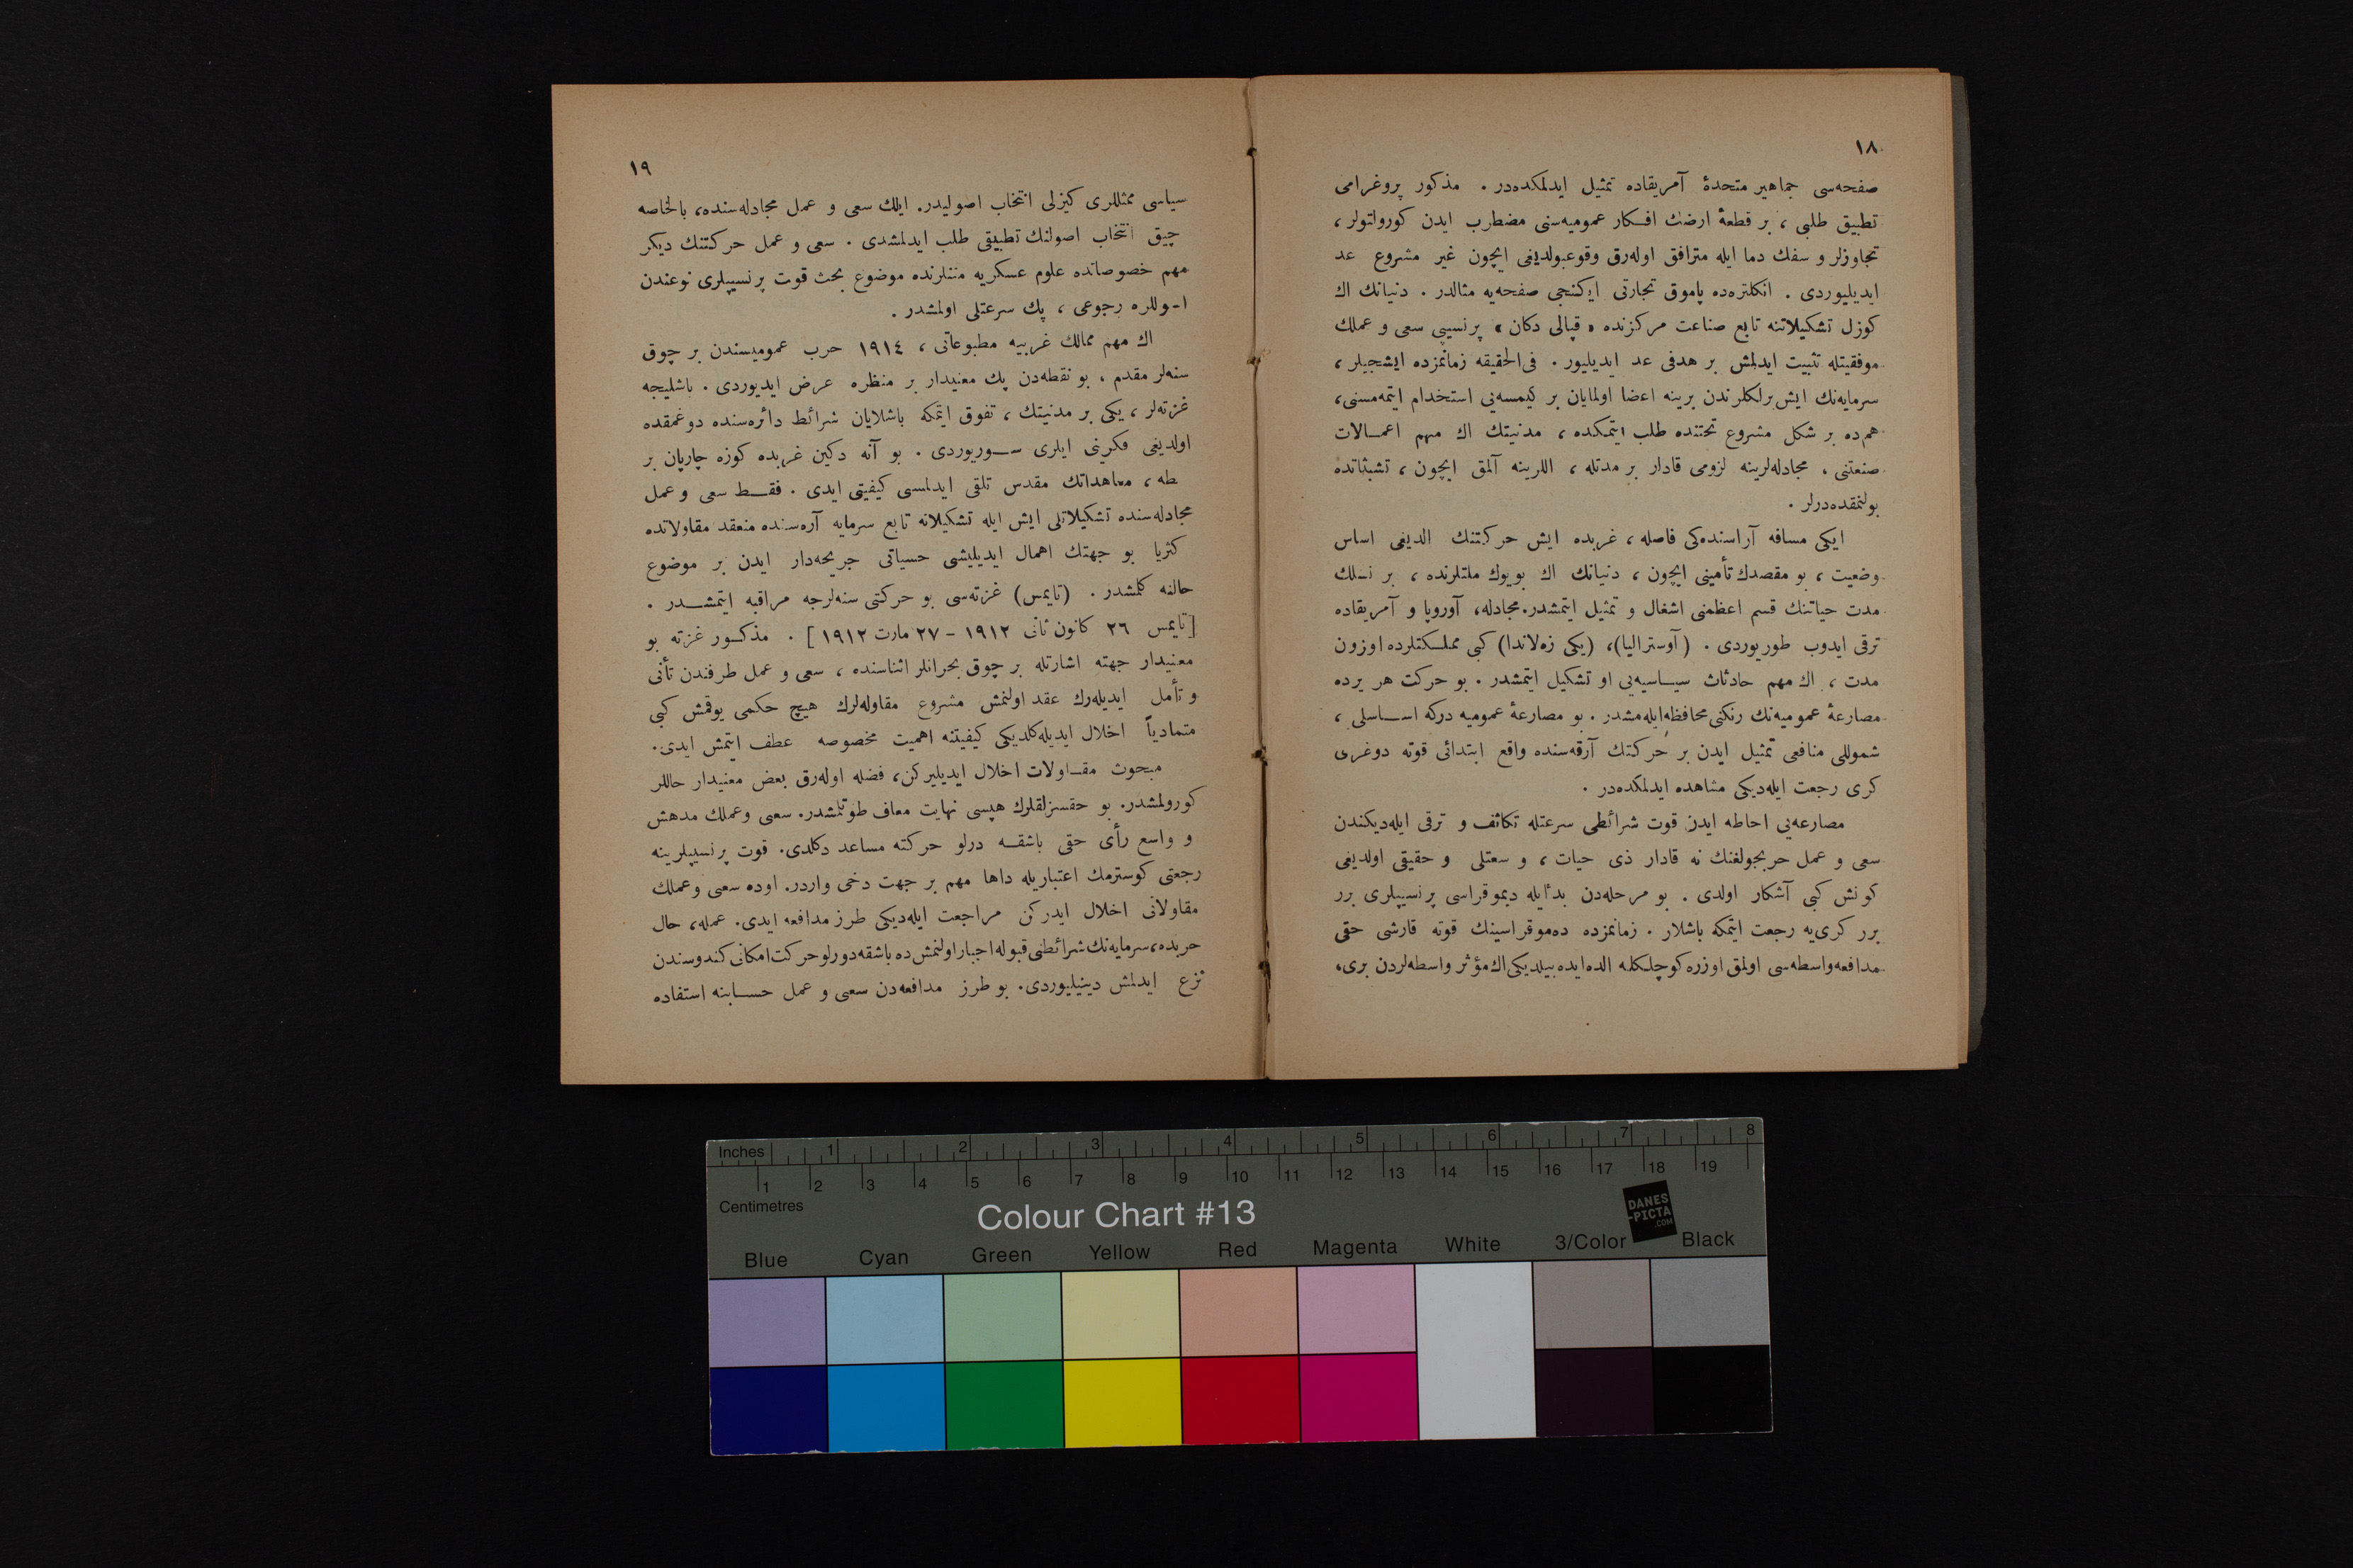 ١٨
صفحه‌سی جماهیر متحدهٔ آمریقاده تمثیل ایدلمکده‌در . مذکور پروغرامی
تطبیق طلبی ، بر قطعهٔ ارضك افکار عمومیه‌سنی مضطرب ایدن کورولتولر ،
تجاوزلر و سفك دما ایله مترافق اوله‌رق وقوعبولدیغی ایچون غیر مشروع عد
ایدیلیوردی . انکلتره‌ده پاموق تجارتی ایکنجی صفحه‌یه مثالدر . دنیانك اك
کوزل تشکیلاتنه تابع صناعت مرکزنده « قپالی دکان » پرنسیپی سعی و عملك
موفقیتله تثبیت ایدلمش بر هدفی عد ایدیلیور . فی‌الحقیقه زمانمزده ایشجیلر ،
سرمایه‌نك ایش برلکلرندن برینه اعضا اولمایان بر کیمسه‌یی استخدام ایتمه‌مسنی،
هم‌ده بر شکل مشروع تحتنده طلب ایتمکده ، مدنیتك اك مهم اعمالات
صنعتنی ، مجادله‌لرینه لزومی قادار بر مدتله ، اللرینه آلمق ایچون ، تشبثاتده
بولنمقده‌درلر .
ایکی مسافه آراسنده‌کی فاصله ، غربده ایش حرکتنك الدیغی اساس
وضعیت ، بو مقصدك تأمینی ایچون ، دنیانك اك بویوك ملتلرنده ، بر نسلك
مدت حیاتنك قسم اعظمنی اشغال و تمثیل ایتمشدر. مجادله، آوروپا و آمریقاده
ترقی ایدوب طوریوردی . (آوسترالیا)، (یکی زه‌لاندا) کبی مملکتلرده اوزون
مدت ، اك مهم حادثات سیاسیه‌یی او تشکیل ایتمشدر . بو حرکت هر یرده
مصارعهٔ عمومیه‌نك رنکنی محافظه ایله‌مشدر . بو مصارعهٔ عمومیه درکه اساسلی ،
شموللی منافعی تمثیل ایدن بر حرکتك آرقه‌سنده واقع ابتدائی قوته دوغری
کری رجعت ایله‌دیکی مشاهده ایدلمکده‌در .
مصارعه‌یی احاطه ایدن قوت شرائطی سرعتله تکاثف و ترقی ایله‌دیکندن
سعی و عمل حربجولغنك نه قادار ذی حیات ، و سعتلی و حقیقی اولدیغی
کونش کبی آشکار اولدی . بو مرحله‌دن بدأ ایله دیموقراسی پرنسیپلری برر
برر کری‌یه رجعت ایتمکه باشلار . زمانمزده ده‌موقراسینك قوته قارشی حقی
مدافعه واسطه‌سی اولمق اوزره کوچلکله الده ایده بیلدیکی اك مؤثر واسطه‌لردن بری،
١٩
سیاسی ممثللری کیزلی انتخاب اصولیدر. ایلك سعی و عمل مجادله‌سنده، بالخاصه
چیق انتخاب اصولنك تطبیقی طلب ایدلمشدی . سعی و عمل حرکتنك دیکر
مهم خصوصاتده علوم عسکریه متنلرنده موضوع بحث قوت پرنسیپلری نوعندن
رجوعی ، پك سرعتلی اولمشدر .
اك مهم ممالك غربیه مطبوعاتی ، ١٩١٤ حرب عمومیسندن بر چوق
سنه‌لر مقدم ، بو نقطه‌دن پك معنیدار بر منظره عرض ایدیوردی . باشلیجه
غزته‌لر ، یکی بر مدنیتك ، تفوق ایتمکه باشلایان شرائط دائره‌سنده دوغمقده
اولدیغی فکرینی ایلری سوریوردی . بو آنه دکین غربده کوزه چارپان بر
طه ، معاهداتك مقدس تلقی ایدلمسی کیفیتی ایدی . فقط سعی و عمل
مجادله‌سنده تشکیلاتلی ایش ایله تشکیلاته تابع سرمایه آره‌سنده منعقد مقاولاتده
کثریا بو جهتك اهمال ایدیلیشی حسیاتی جریحه‌دار ایدن بر موضوع
حالنه کلمشدر . (تایمس) غزته‌سی بو حرکتی سنه‌لرجه مراقبه ایتمشدر .
[تایمس ٢٦ کانون ثانی ١٩١٢ - ٢٧ مارت ١٩١٢] . مذکور غزته بو
معنیدار جهته اشارتله بر چوق بحرانلر اثناسنده ، سعی و عمل طرفندن تأنی
و تأمل ایدیله‌رك عقد اولنمش مشروع مقاوله‌لرك هیچ حکمی یوقمش کبی
متمادیاً اخلال ایدیله‌کلدیکی کیفیتنه اهمیت مخصوصه عطف ایتمش ایدی.
مبحوث مقاولات اخلال ایدیلیرکن، فضله اوله‌رق بعض معنیدار حاللر
کورولمشدر. بو حقسزلقلرك هپسی نهایت معاف طوتلمشدر. سعی و عملك مدهش
و واسع رأی حقی باشقه درلو حرکته مساعد دکلدی. قوت پرنسیپلرینه
رجعتی کوسترمك اعتباریله داها مهم بر جهت دخی واردر. اوده سعی و عملك
مقاولاتی اخلال ایدرکن مراجعت ایله‌دیکی طرز مدافعه ایدی. عمله، حال
حربده، سرمایه‌نك شرائطنی قبوله اجبار اولنمش‌ده باشقه دورلو حرکت امکانی کندوسندن
نزع ایدلمش دینیلیوردی. بو طرز مدافعه‌دن سعی و عمل حسابنه استفاده
Inches 1 2 3 4 5 6 7 8
1 2 3 4 5 6 7 8 9 10 11 12 13 14 15 16 17 18 19
Centimetres
Colour Chart #13
DANES
-PICTA
.COM
Blue Cyan Green Yellow Red Magenta White 3/Color Black